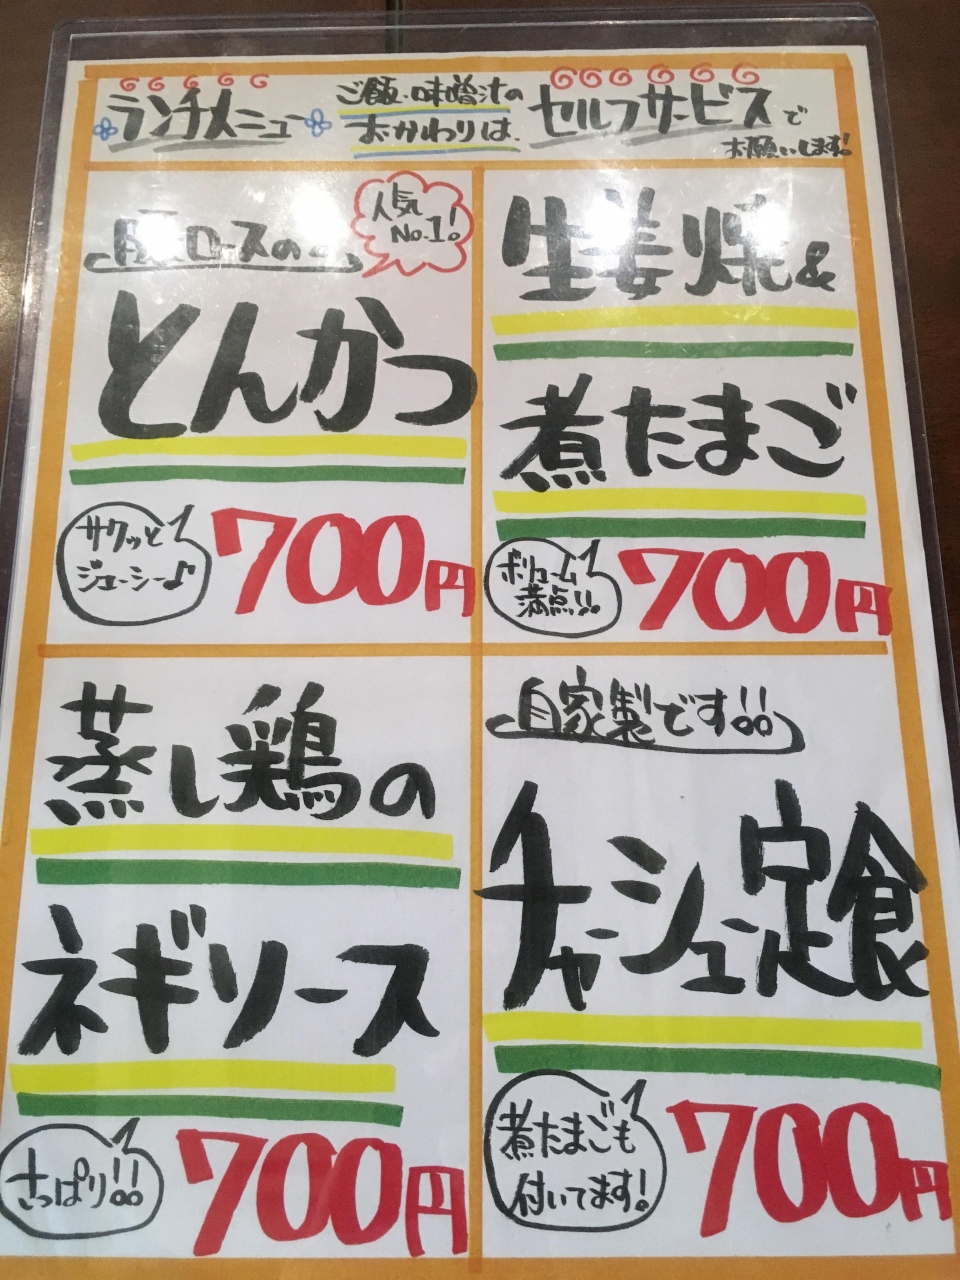 ランチメニュー
ご飯・味噌汁の
おかわりは
セルフサービスで
お願いします!
豚ロースの
人気
No.1!
とんかつ
サクッと
ジューシー♪
700円
生姜焼&
煮たまご
ボリューム
満点!!
700円
蒸し鶏の
ネギソース
さっぱり!!
700円
自家製です!!
チャーシュー定食
煮たまごも
付いてます!
700円